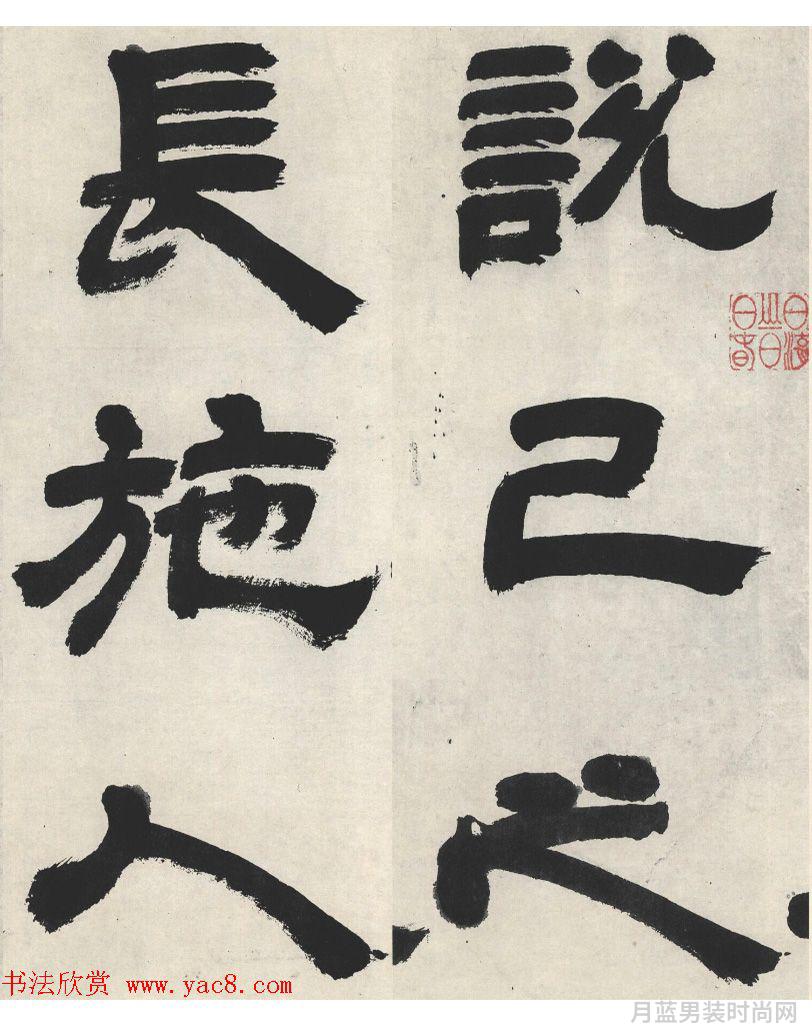 説己之
長施人
书法欣赏 www.yac8.com
月蓝男装时尚网